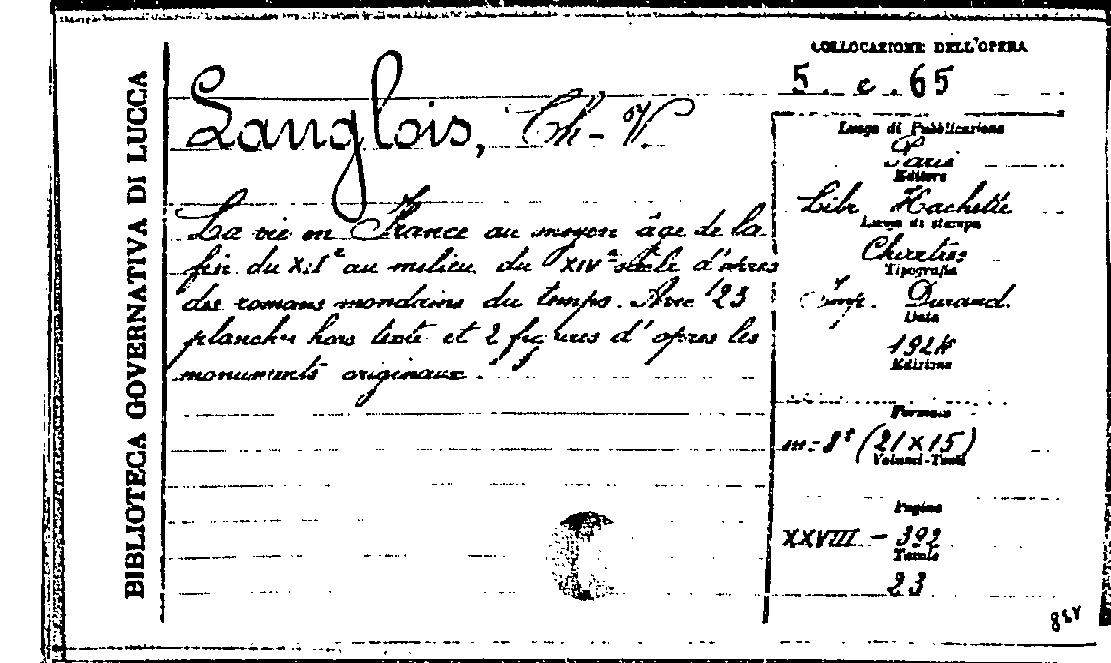 BIBLIOTECA GOVERNATIVA DI LUCCA
Langlois, Ch-V.
La vie en France au moyen âge de la
fin du XIIe au milieu du XIVe siècle d'après
des romans mondains du temps. Avec 23
planches hors texte et 2 figures d'après les
monuments originaux.
COLLOCAZIONE DELL'OPERA
5. c. 65
Luogo di Pubblicazione
Paris
Editore
Libr Hachette
Luogo di stampa
Chartres
Tipografia
Imp. Durand.
Data
1924
Edizione
Formato
in-8° (21x15)
Volumi-Tomi
Pagine
XXVIII - 392
Tavole
23